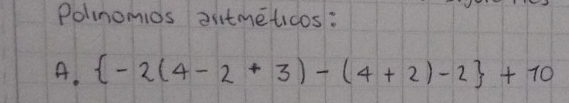 Polinomios aritméticos:
A. {-2(4-2+3)-(4+2)-2} + 10